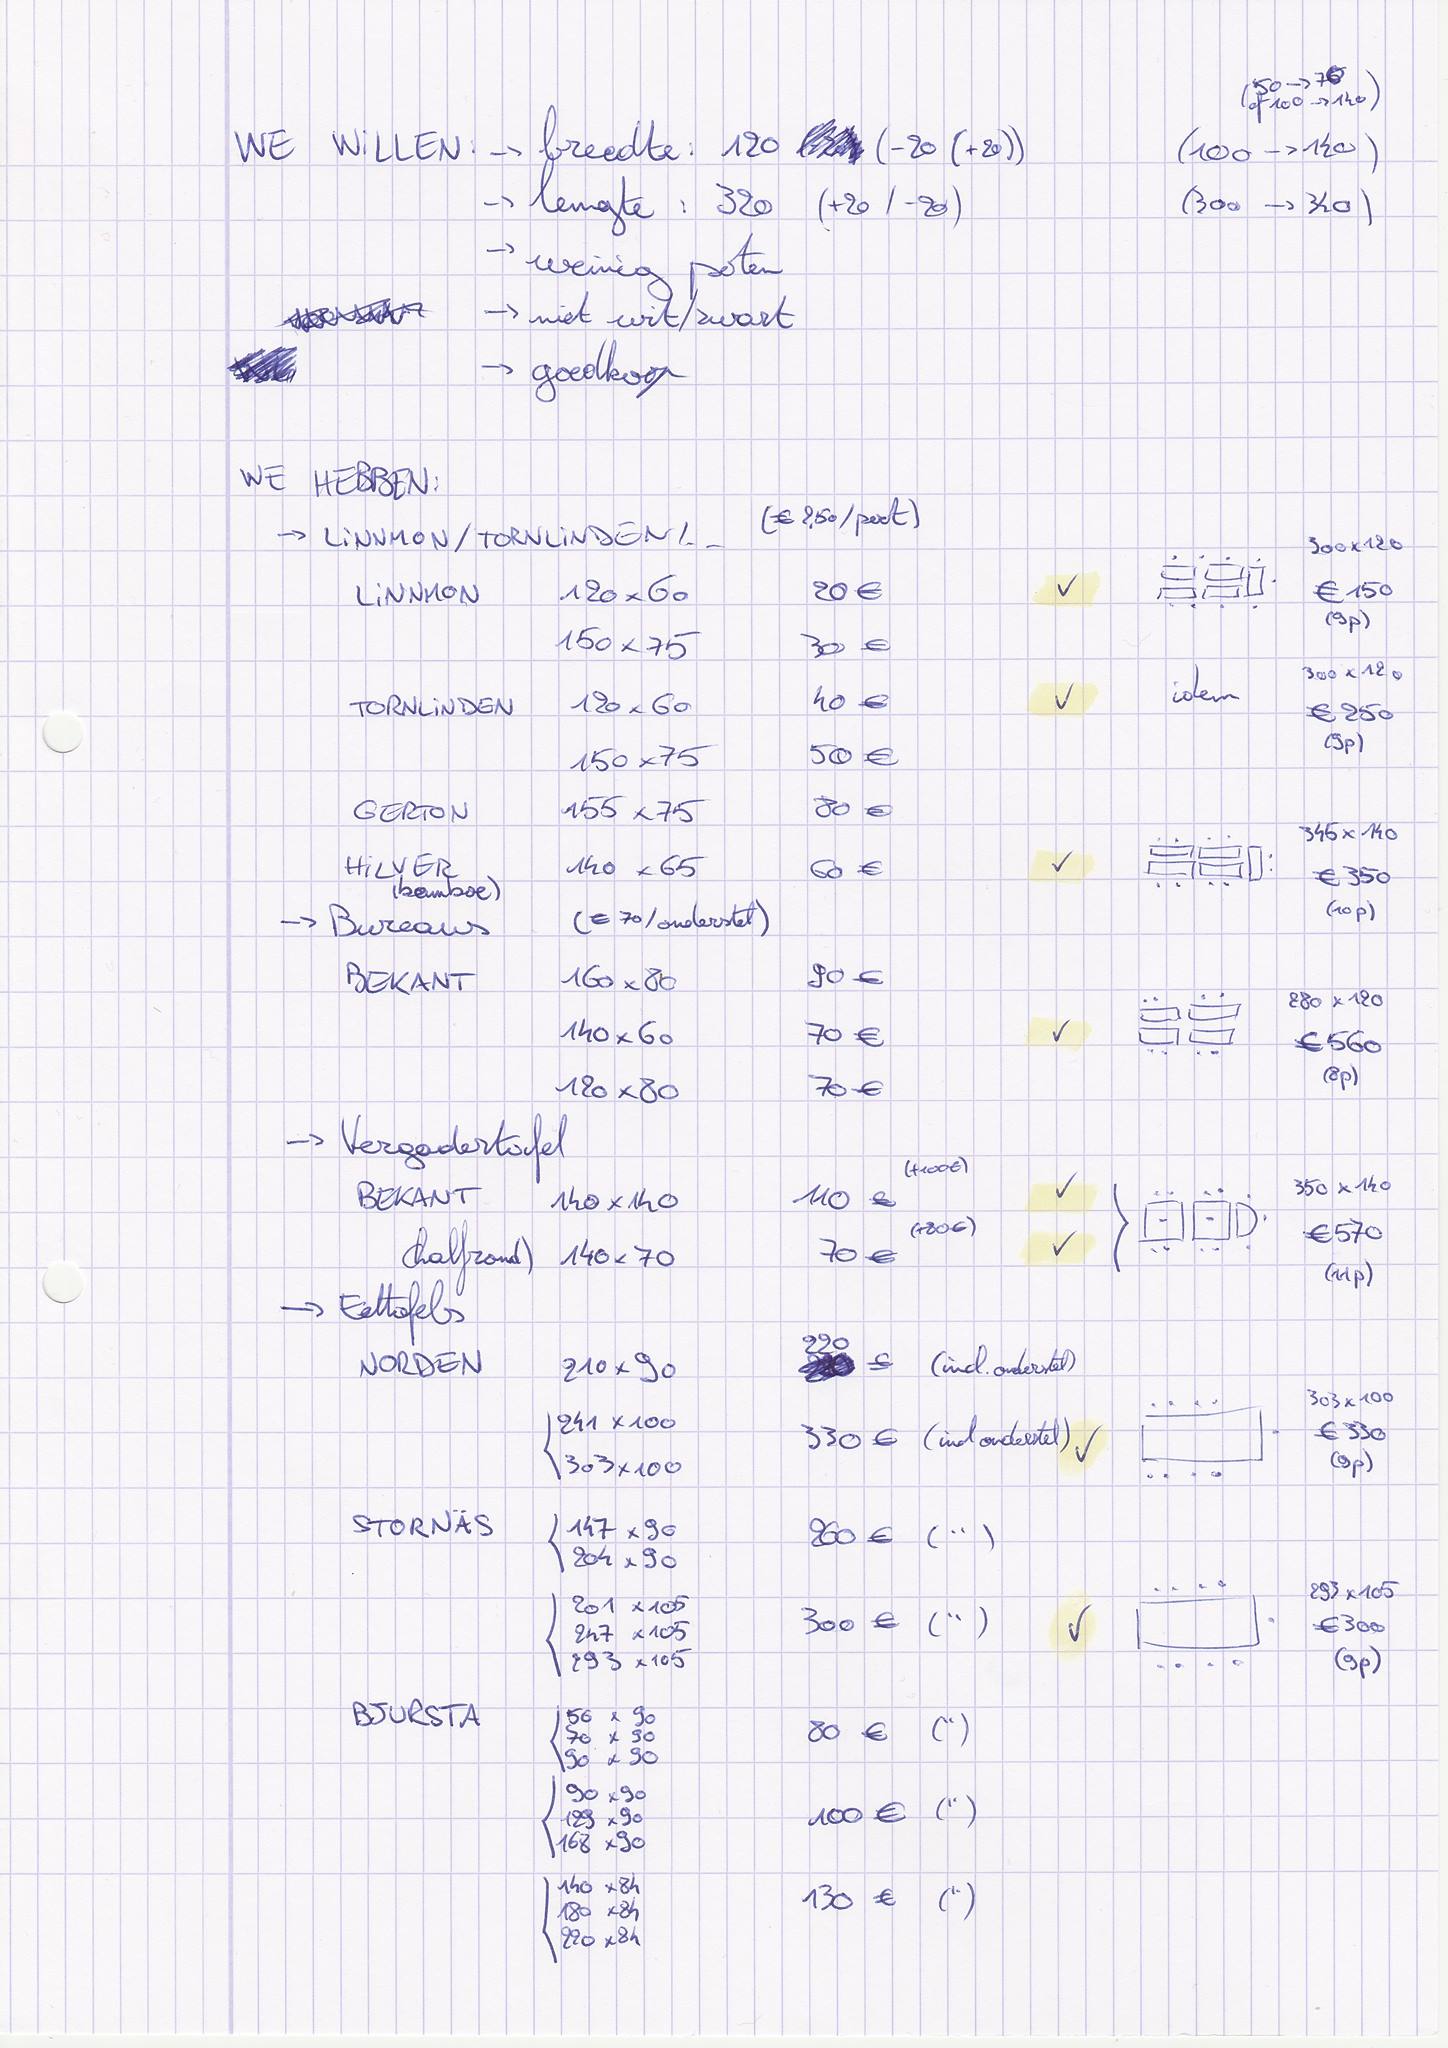 (50 → 70
of 100 → 140)
WE WILLEN: → breedte: 120 (-20 (+20)) (100 → 140)
→ lengte: 320 (+20 / -20) (300 → 340)
→ weinig poten
→ niet wit/zwart
→ goedkoop
WE HEBBEN:
→ LINNMON/TORNLINDEN/.. (€ 2,50/poot)
300 x 120
LINNMON 120 x 60 20 € ✓ € 150
(9p)
150 x 75 30 €
300 x 120
TORNLINDEN 120 x 60 40 € ✓ idem € 250
(9p)
150 x 75 50 €
GERTON 155 x 75 80 €
345 x 140
HILVER 140 x 65 60 € ✓ € 350
(bamboe) (10p)
→ Bureaus (€ 70/onderstel)
BEKANT 160 x 80 90 €
280 x 120
140 x 60 70 € ✓ € 560
(8p)
120 x 80 70 €
→ Vergadertafel
BEKANT 140 x 140 110 € (+100€) ✓ 350 x 140
€ 570
(halfrond) 140 x 70 70 € (+80€) ✓ (11p)
→ Eettafels
220
NORDEN 210 x 90 € (incl. onderstel)
303 x 100
241 x 100
330 € (incl onderstel) ✓ € 330
303 x 100 (9p)
STORNÄS 147 x 90 260 € (")
204 x 90
293 x 105
201 x 105
247 x 105 300 € (") ✓ € 300
293 x 105 (9p)
BJURSTA 50 x 90
70 x 90 80 € (")
90 x 90
90 x 90
129 x 90 100 € (")
168 x 90
140 x 84
180 x 84 130 € (")
220 x 84